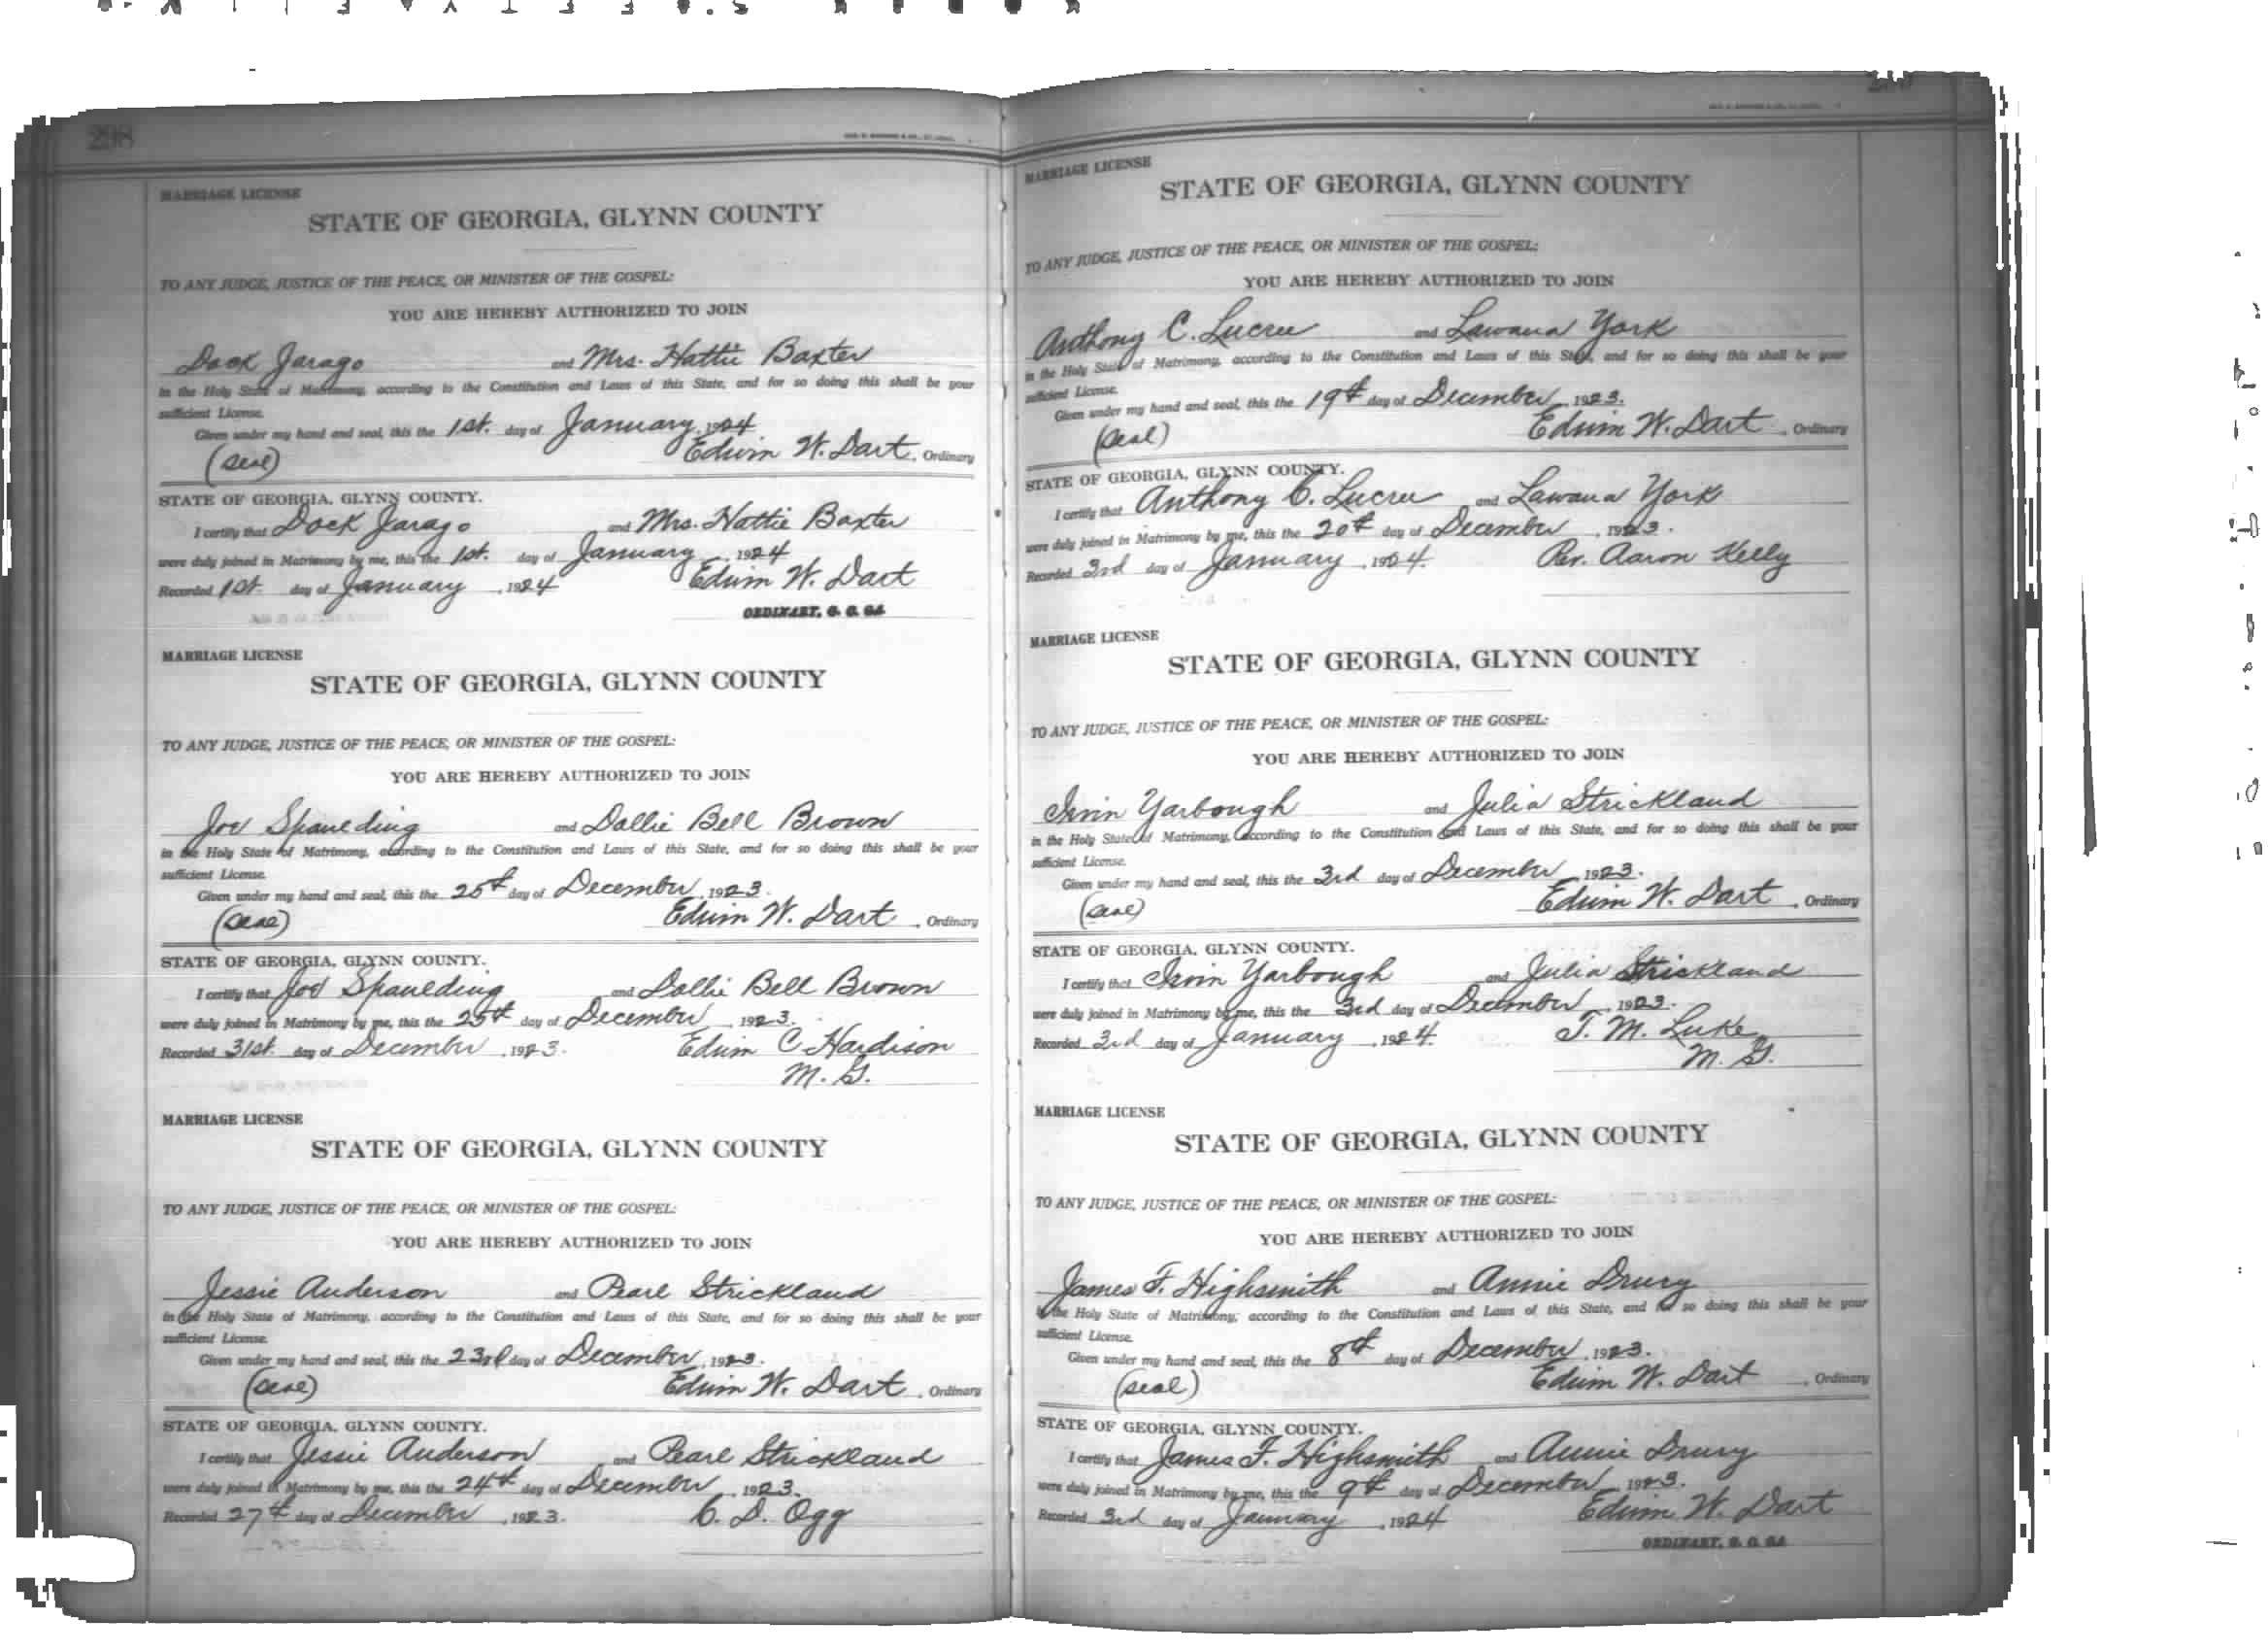 298
MARRIAGE LICENSE
STATE OF GEORGIA, GLYNN COUNTY
TO ANY JUDGE, JUSTICE OF THE PEACE, OR MINISTER OF THE GOSPEL:
YOU ARE HEREBY AUTHORIZED TO JOIN
Dock Jarago and Mrs. Hattie Baxter
in the Holy State of Matrimony, according to the Constitution and Laws of this State, and for so doing this shall be your
sufficient License.
Given under my hand and seal, this the 1st. day of January, 1924
(Seal) Edwin W. Dart, Ordinary
STATE OF GEORGIA, GLYNN COUNTY.
I certify that Dock Jarago and Mrs. Hattie Baxter
were duly joined in Matrimony by me, this the 1st. day of January, 1924
Recorded 1st. day of January, 1924 Edwin W. Dart
ORDINARY, G. C. GA
MARRIAGE LICENSE
STATE OF GEORGIA, GLYNN COUNTY
TO ANY JUDGE, JUSTICE OF THE PEACE, OR MINISTER OF THE GOSPEL:
YOU ARE HEREBY AUTHORIZED TO JOIN
Joe Spaulding and Dollie Bell Brown
in the Holy State of Matrimony, according to the Constitution and Laws of this State, and for so doing this shall be your
sufficient License.
Given under my hand and seal, this the 25th day of December, 1923.
(Seal) Edwin W. Dart, Ordinary
STATE OF GEORGIA, GLYNN COUNTY.
I certify that Joe Spaulding and Dollie Bell Brown
were duly joined in Matrimony by me, this the 25th day of December, 1923.
Recorded 31st. day of December, 1923. Edwin C Hardison
M. G.
MARRIAGE LICENSE
STATE OF GEORGIA, GLYNN COUNTY
TO ANY JUDGE, JUSTICE OF THE PEACE, OR MINISTER OF THE GOSPEL:
YOU ARE HEREBY AUTHORIZED TO JOIN
Jessie Anderson and Pearl Strickland
in the Holy State of Matrimony, according to the Constitution and Laws of this State, and for so doing this shall be your
sufficient License.
Given under my hand and seal, this the 23rd day of December, 1923.
(Seal) Edwin W. Dart, Ordinary
STATE OF GEORGIA, GLYNN COUNTY.
I certify that Jessie Anderson and Pearl Strickland
were duly joined in Matrimony by me, this the 24th day of December, 1923.
Recorded 27th day of December, 1923. C. D. Ogg
MARRIAGE LICENSE
STATE OF GEORGIA, GLYNN COUNTY
TO ANY JUDGE, JUSTICE OF THE PEACE, OR MINISTER OF THE GOSPEL:
YOU ARE HEREBY AUTHORIZED TO JOIN
Anthony C. Lucree and Lawana York
in the Holy State of Matrimony, according to the Constitution and Laws of this State, and for so doing this shall be your
sufficient License.
Given under my hand and seal, this the 19th day of December, 1923.
(Seal) Edwin W. Dart, Ordinary
STATE OF GEORGIA, GLYNN COUNTY.
I certify that Anthony C. Lucree and Lawana York
were duly joined in Matrimony by me, this the 20th day of December, 1923.
Recorded 3rd day of January, 1924. Rev. Aaron Kelly
MARRIAGE LICENSE
STATE OF GEORGIA, GLYNN COUNTY
TO ANY JUDGE, JUSTICE OF THE PEACE, OR MINISTER OF THE GOSPEL:
YOU ARE HEREBY AUTHORIZED TO JOIN
Irvin Yarbough and Julia Strickland
in the Holy State of Matrimony, according to the Constitution and Laws of this State, and for so doing this shall be your
sufficient License.
Given under my hand and seal, this the 3rd day of December, 1923.
(Seal) Edwin W. Dart, Ordinary
STATE OF GEORGIA, GLYNN COUNTY.
I certify that Irvin Yarbough and Julia Strickland
were duly joined in Matrimony by me, this the 3rd day of December, 1923.
Recorded 3rd day of January, 1924. T. M. Luke
M. G.
MARRIAGE LICENSE
STATE OF GEORGIA, GLYNN COUNTY
TO ANY JUDGE, JUSTICE OF THE PEACE, OR MINISTER OF THE GOSPEL:
YOU ARE HEREBY AUTHORIZED TO JOIN
James F. Highsmith and Annie Drury
in the Holy State of Matrimony, according to the Constitution and Laws of this State, and for so doing this shall be your
sufficient License.
Given under my hand and seal, this the 8th day of December, 1923.
(Seal) Edwin W. Dart, Ordinary
STATE OF GEORGIA, GLYNN COUNTY.
I certify that James F. Highsmith and Annie Drury
were duly joined in Matrimony by me, this the 9th day of December, 1923.
Recorded 3rd day of January, 1924 Edwin W. Dart
ORDINARY, G. C. GA